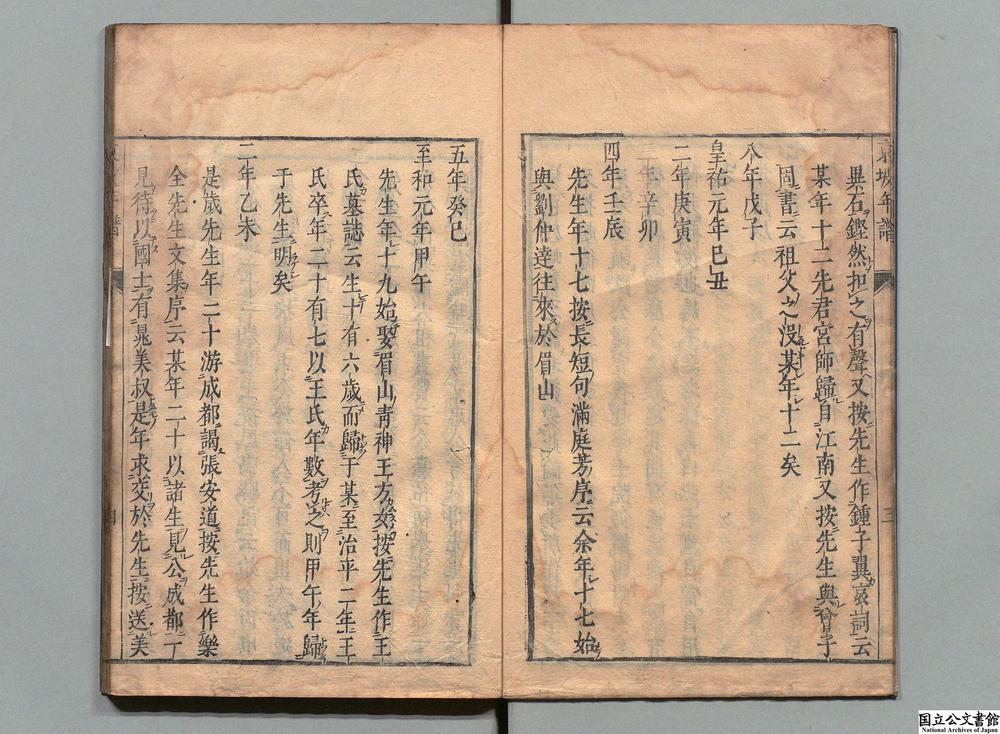 東坡年譜
三
異石鏗然扣之有聲又按先生作鍾子翼哀詞云
某年十二先君宮師歸自江南又按先生與曾子
固書云祖父之沒某年十二矣
八年戊子
皇祐元年己丑
二年庚寅
三年辛卯
四年壬辰
先生年十七按長短句滿庭芳序云余年十七始
與劉仲達往來於眉山
五年癸巳
至和元年甲午
先生年十九始娶眉山青神王方女按先生作王
氏墓誌云生十有六歲而歸于某至治平二年王
氏卒年二十有七以王氏年數考之則甲午年歸
于先生明矣
二年乙未
是歲先生年二十游成都謁張安道按先生作樂
全先生文集序云某年二十以諸生見公成都公一
見待以國士有晁美叔是年求交於先生按送美
四
国立公文書館
National Archives of Japan